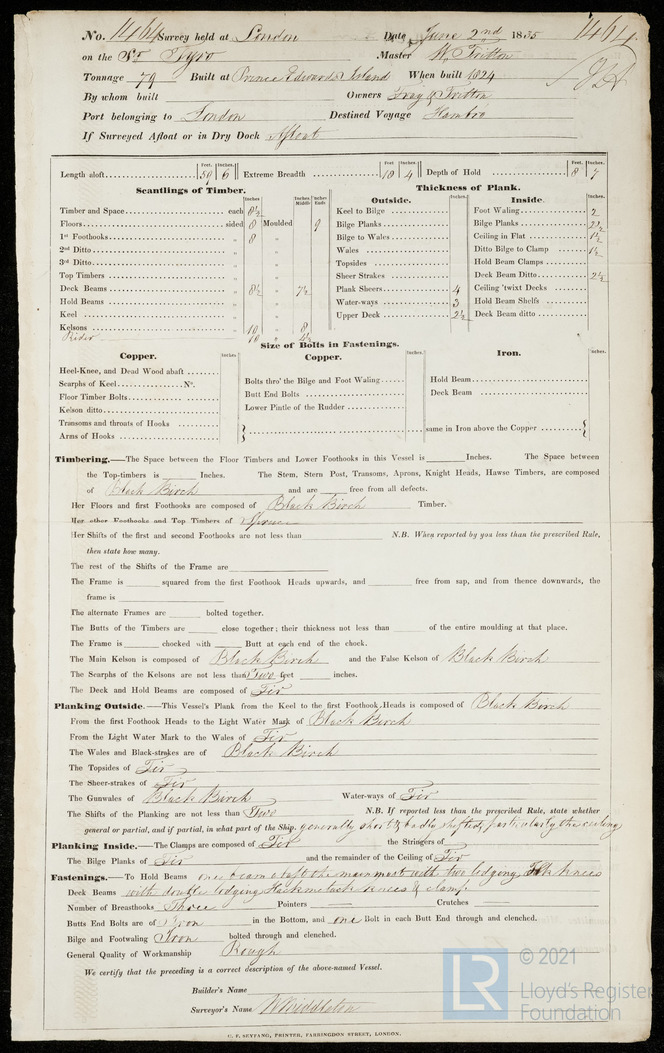 No. 1464 Survey held at London Date June 2nd 1835 1464
on the Sr Tyro Master W. Tritton
Tonnage 79 Built at Prince Edward Island When built 1824
By whom built Owners Gray & Tritton
Port belonging to London Destined Voyage Hambro
If Surveyed Afloat or in Dry Dock Afloat
Length aloft Feet. 59 Inches. 6 Extreme Breadth Feet. 18 Inches. 4 Depth of Hold Feet. 8 Inches. 7
Scantlings of Timber. Thickness of Plank.
Inches Inches Middle Inches Ends Outside. Inches. Inside. Inches.
Timber and Space each 8½ Keel to Bilge Foot Waling 2
Floors sided 8 Moulded 9 Bilge Planks Bilge Planks 2½
1st Foothooks „ 8 „ Bilge to Wales Ceiling in Flat 1½
2nd Ditto „ „ Wales Ditto Bilge to Clamp 1½
3rd Ditto „ „ Topsides Hold Beam Clamps
Top Timbers „ „ Sheer Strakes Deck Beam Ditto 2½
Deck Beams „ 8½ „ 7½ Plank Sheers 4 Ceiling 'twixt Decks
Hold Beams „ „ Water-ways 3 Hold Beam Shelfs
Keel „ „ Upper Deck 2½ Deck Beam ditto
Kelsons „ 10 „ 8
Rider 10 4½
Size of Bolts in Fastenings.
Copper. Inches. Copper. Inches. Iron. Inches.
Heel-Knee, and Dead Wood abaft
Scarphs of Keel No. Bolts thro' the Bilge and Foot Waling Hold Beam
Floor Timber Bolts Butt End Bolts Deck Beam
Kelson ditto Lower Pintle of the Rudder
Transoms and throats of Hooks same in Iron above the Copper
Arms of Hooks
Timbering.—The Space between the Floor Timbers and Lower Foothooks in this Vessel is Inches. The Space between
the Top-timbers is Inches. The Stem, Stern Post, Transoms, Aprons, Knight Heads, Hawse Timbers, are composed
of Black Birch and are free from all defects.
Her Floors and first Foothooks are composed of Black Birch Timber.
Her other Foothooks and Top Timbers of Spruce
Her Shifts of the first and second Foothooks are not less than N.B. When reported by you less than the prescribed Rule,
then state how many.
The rest of the Shifts of the Frame are
The Frame is squared from the first Foothook Heads upwards, and free from sap, and from thence downwards, the
frame is
The alternate Frames are bolted together.
The Butts of the Timbers are close together; their thickness not less than of the entire moulding at that place.
The Frame is chocked with Butt at each end of the chock.
The Main Kelson is composed of Black Birch and the False Kelson of Black Birch
The Scarphs of the Kelsons are not less than Two feet inches.
The Deck and Hold Beams are composed of Fir
Planking Outside.—This Vessel's Plank from the Keel to the first Foothook Heads is composed of Black Birch
From the first Foothook Heads to the Light Water Mark of Black Birch
From the Light Water Mark to the Wales of Fir
The Wales and Black-strakes are of Black Birch
The Topsides of Fir
The Sheer-strakes of Fir
The Gunwales of Black Birch Water-ways of Fir
The Shifts of the Planking are not less than Two N.B. If reported less than the prescribed Rule, state whether
general or partial, and if partial, in what part of the Ship. generally short & badly shifted, particularly the ceiling
Planking Inside.—The Clamps are composed of Fir the Stringers of
The Bilge Planks of Fir and the remainder of the Ceiling of Fir
Fastenings.—To Hold Beams one beam abaft the main mast with two lodging knees
Deck Beams with double lodging Hackmetack knees & clamp
Number of Breasthooks Three Pointers Crutches
Butts End Bolts are of Iron in the Bottom, and one Bolt in each Butt End through and clenched.
Bilge and Footwaling Iron bolted through and clenched.
General Quality of Workmanship Rough
We certify that the preceding is a correct description of the above-named Vessel.
Builder's Name
Surveyor's Name W Middleton
C. F. SEYFANG, PRINTER, FARRINGDON STREET, LONDON.
LR © 2021
Lloyd's Register
Foundation